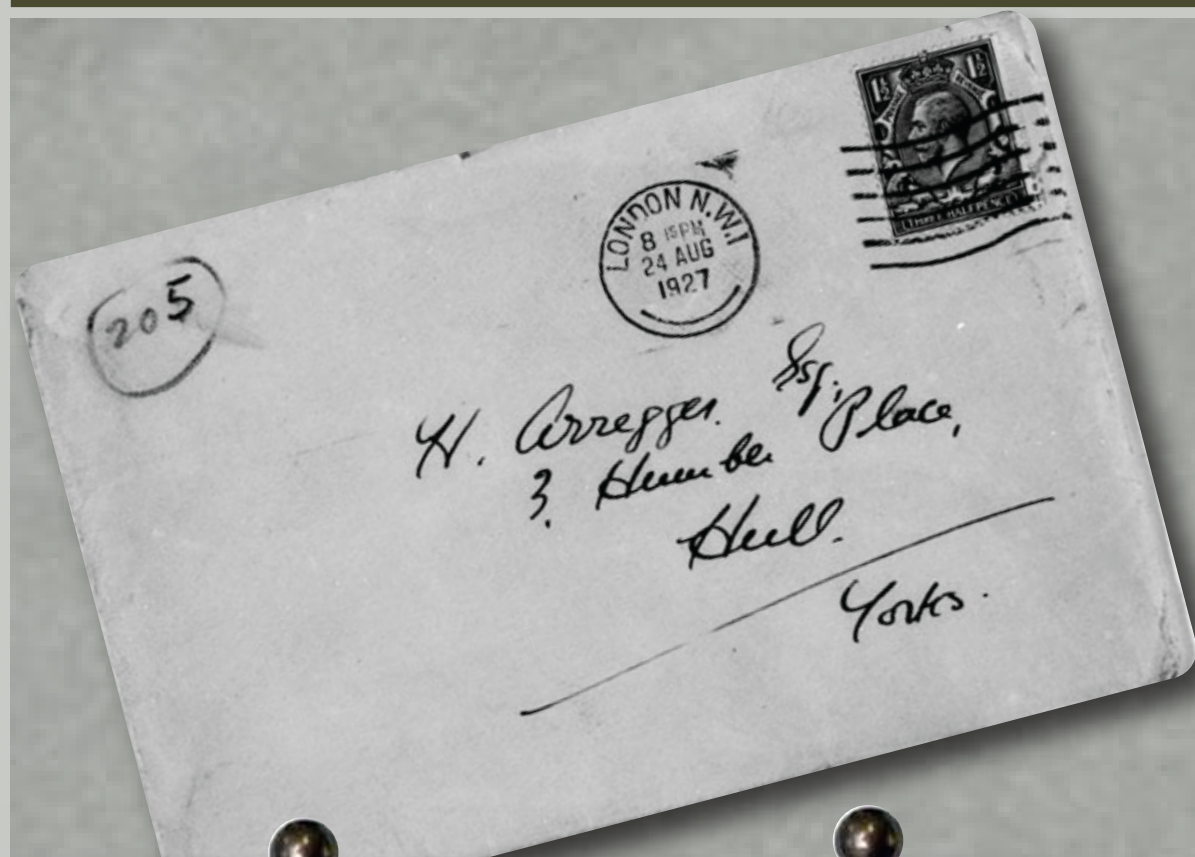 1½ 1½
POSTAGE REVENUE
THREE HALFPENCE
LONDON N.W.1
8 15 PM
24 AUG
1927
205
H. Arregger. Esq.
3. Humber Place,
Hull.
Yorks.